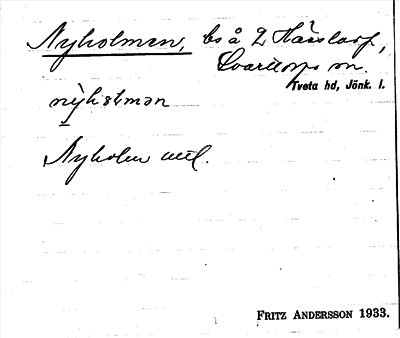 Nyholmen, bs å 2 Härstorp,
Svarttorps sn.
Tveta hd, Jönk. l.
nỳhɷlmən
Nyholm uttl.
FRITZ ANDERSSON 1933.